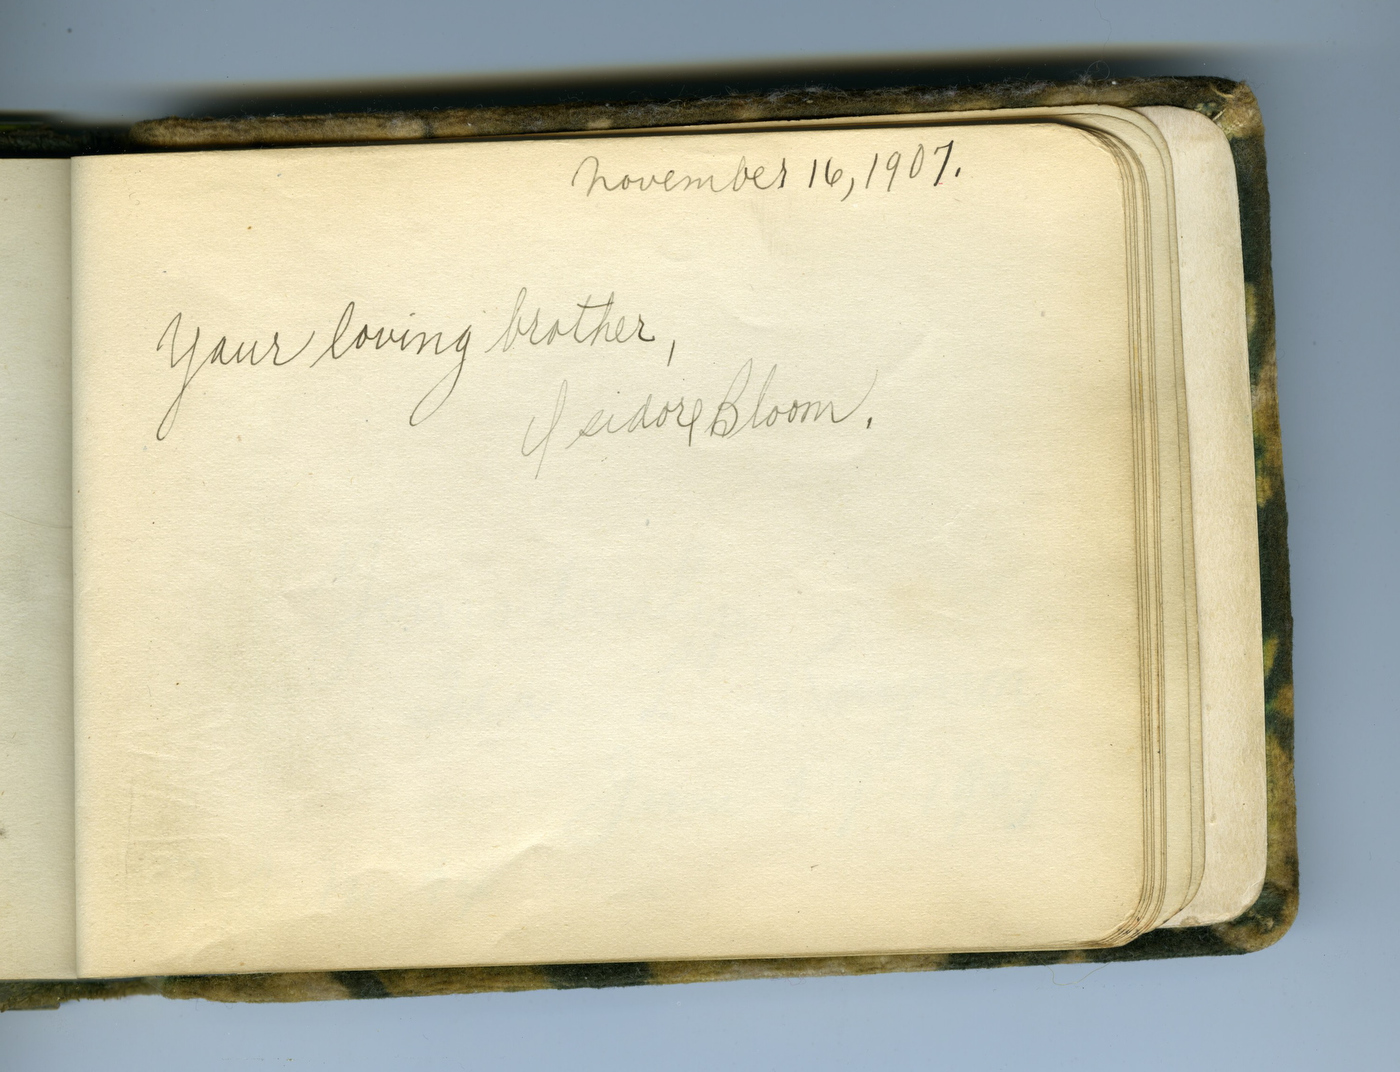 November 16, 1907.
Your loving brother,
Isidore Bloom.